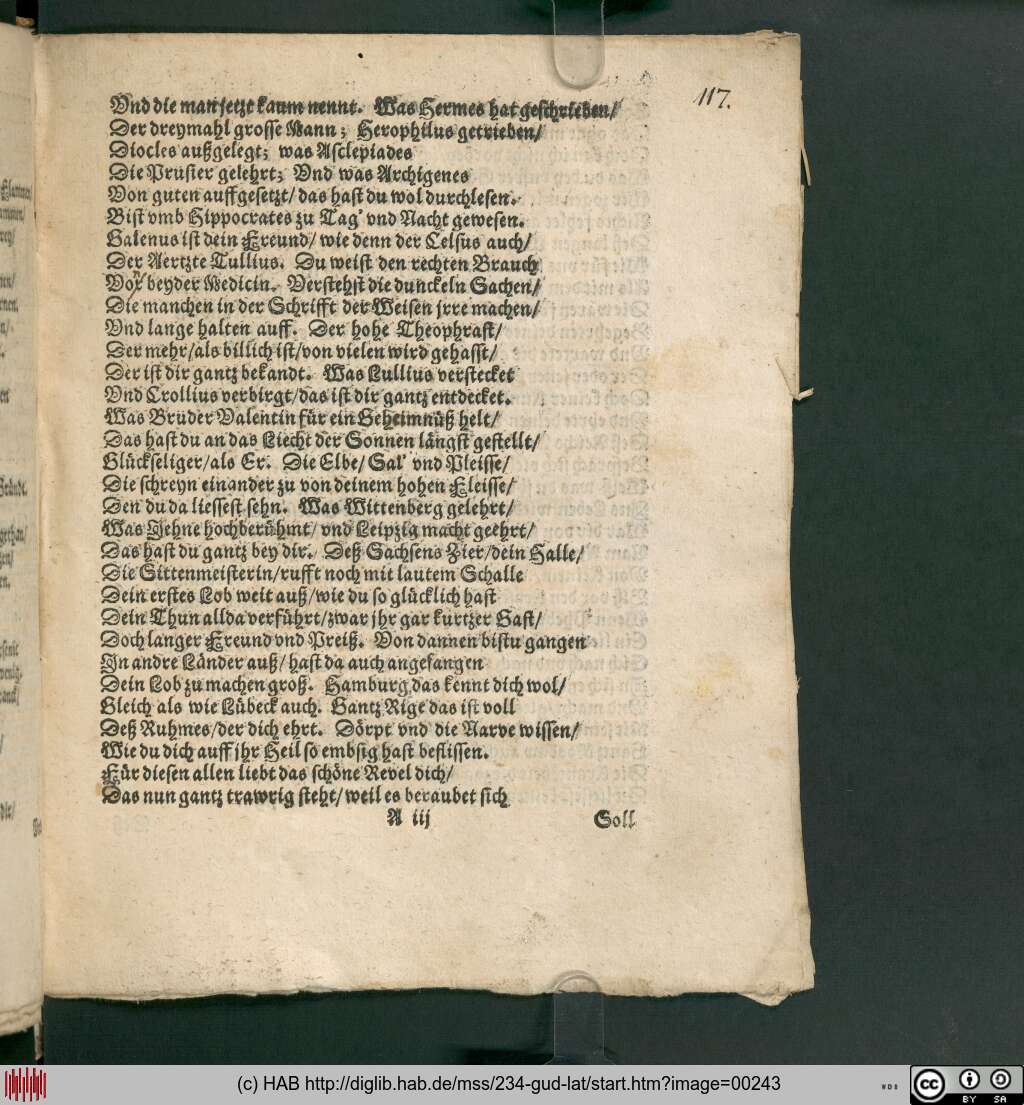 117.
Vnd die man jetzt kaum nennt. Was Hermes hat geschrieben/
Der dreymahl grosse Mann; Herophilus getrieben/
Diocles außgelegt; was Asclepiades
Die Prusier gelehrt; Vnd was Archigenes
Von guten auffgesetzt/ das hast du wol durchlesen.
Bist vmb Hippocrates zu Tag' vnd Nacht gewesen.
Galenus ist dein Freund/ wie denn der Celsus auch/
Der Aertzte Tullius. Du weist den rechten Brauch
Vor beyder Medicin. Verstehst die dunckeln Sachen/
Die manchen in der Schrifft der Weisen jrre machen/
Vnd lange halten auff. Der hohe Theophrast/
Der mehr/ als billich ist/ von vielen wird gehasst/
Der ist dir gantz bekandt. Was Lullius verstecket
Vnd Crollius verbirgt/ das ist dir gantz entdecket.
Was Bruder Valentin für ein Geheimnüß helt/
Das hast du an das Liecht der Sonnen längst gestellt/
Glückseliger/ als Er. Die Elbe/ Sal' vnd Pleisse/
Die schreyn einander zu von deinem hohen Fleisse/
Den du da liessest sehn. Was Wittenberg gelehrt/
Was Jehne hochberühmt/ vnd Leipzig macht geehrt/
Das hast du gantz bey dir. Deß Sachsens Zier/ dein Halle/
Die Sittenmeisterin/ rufft noch mit lautem Schalle
Dein erstes Lob weit auß/ wie du so glücklich hast
Dein Thun allda verführt/ zwar jhr gar kurtzer Gast/
Doch langer Freund vnd Preiß. Von dannen bistu gangen
In andre Länder auß/ hast da auch angefangen
Dein Lob zu machen groß. Hamburg das kennt dich wol/
Gleich als wie Lübeck auch. Gantz Rige das ist voll
Deß Ruhmes/ der dich ehrt. Dörpt vnd die Narve wissen/
Wie du dich auff jhr Heil so embsig hast beflissen.
Für diesen allen liebt das schöne Revel dich/
Das nun gantz trawrig steht/ weil es beraubet sich
A iij Soll
(c) HAB http://diglib.hab.de/mss/234-gud-lat/start.htm?image=00243
WDB
cc BY SA